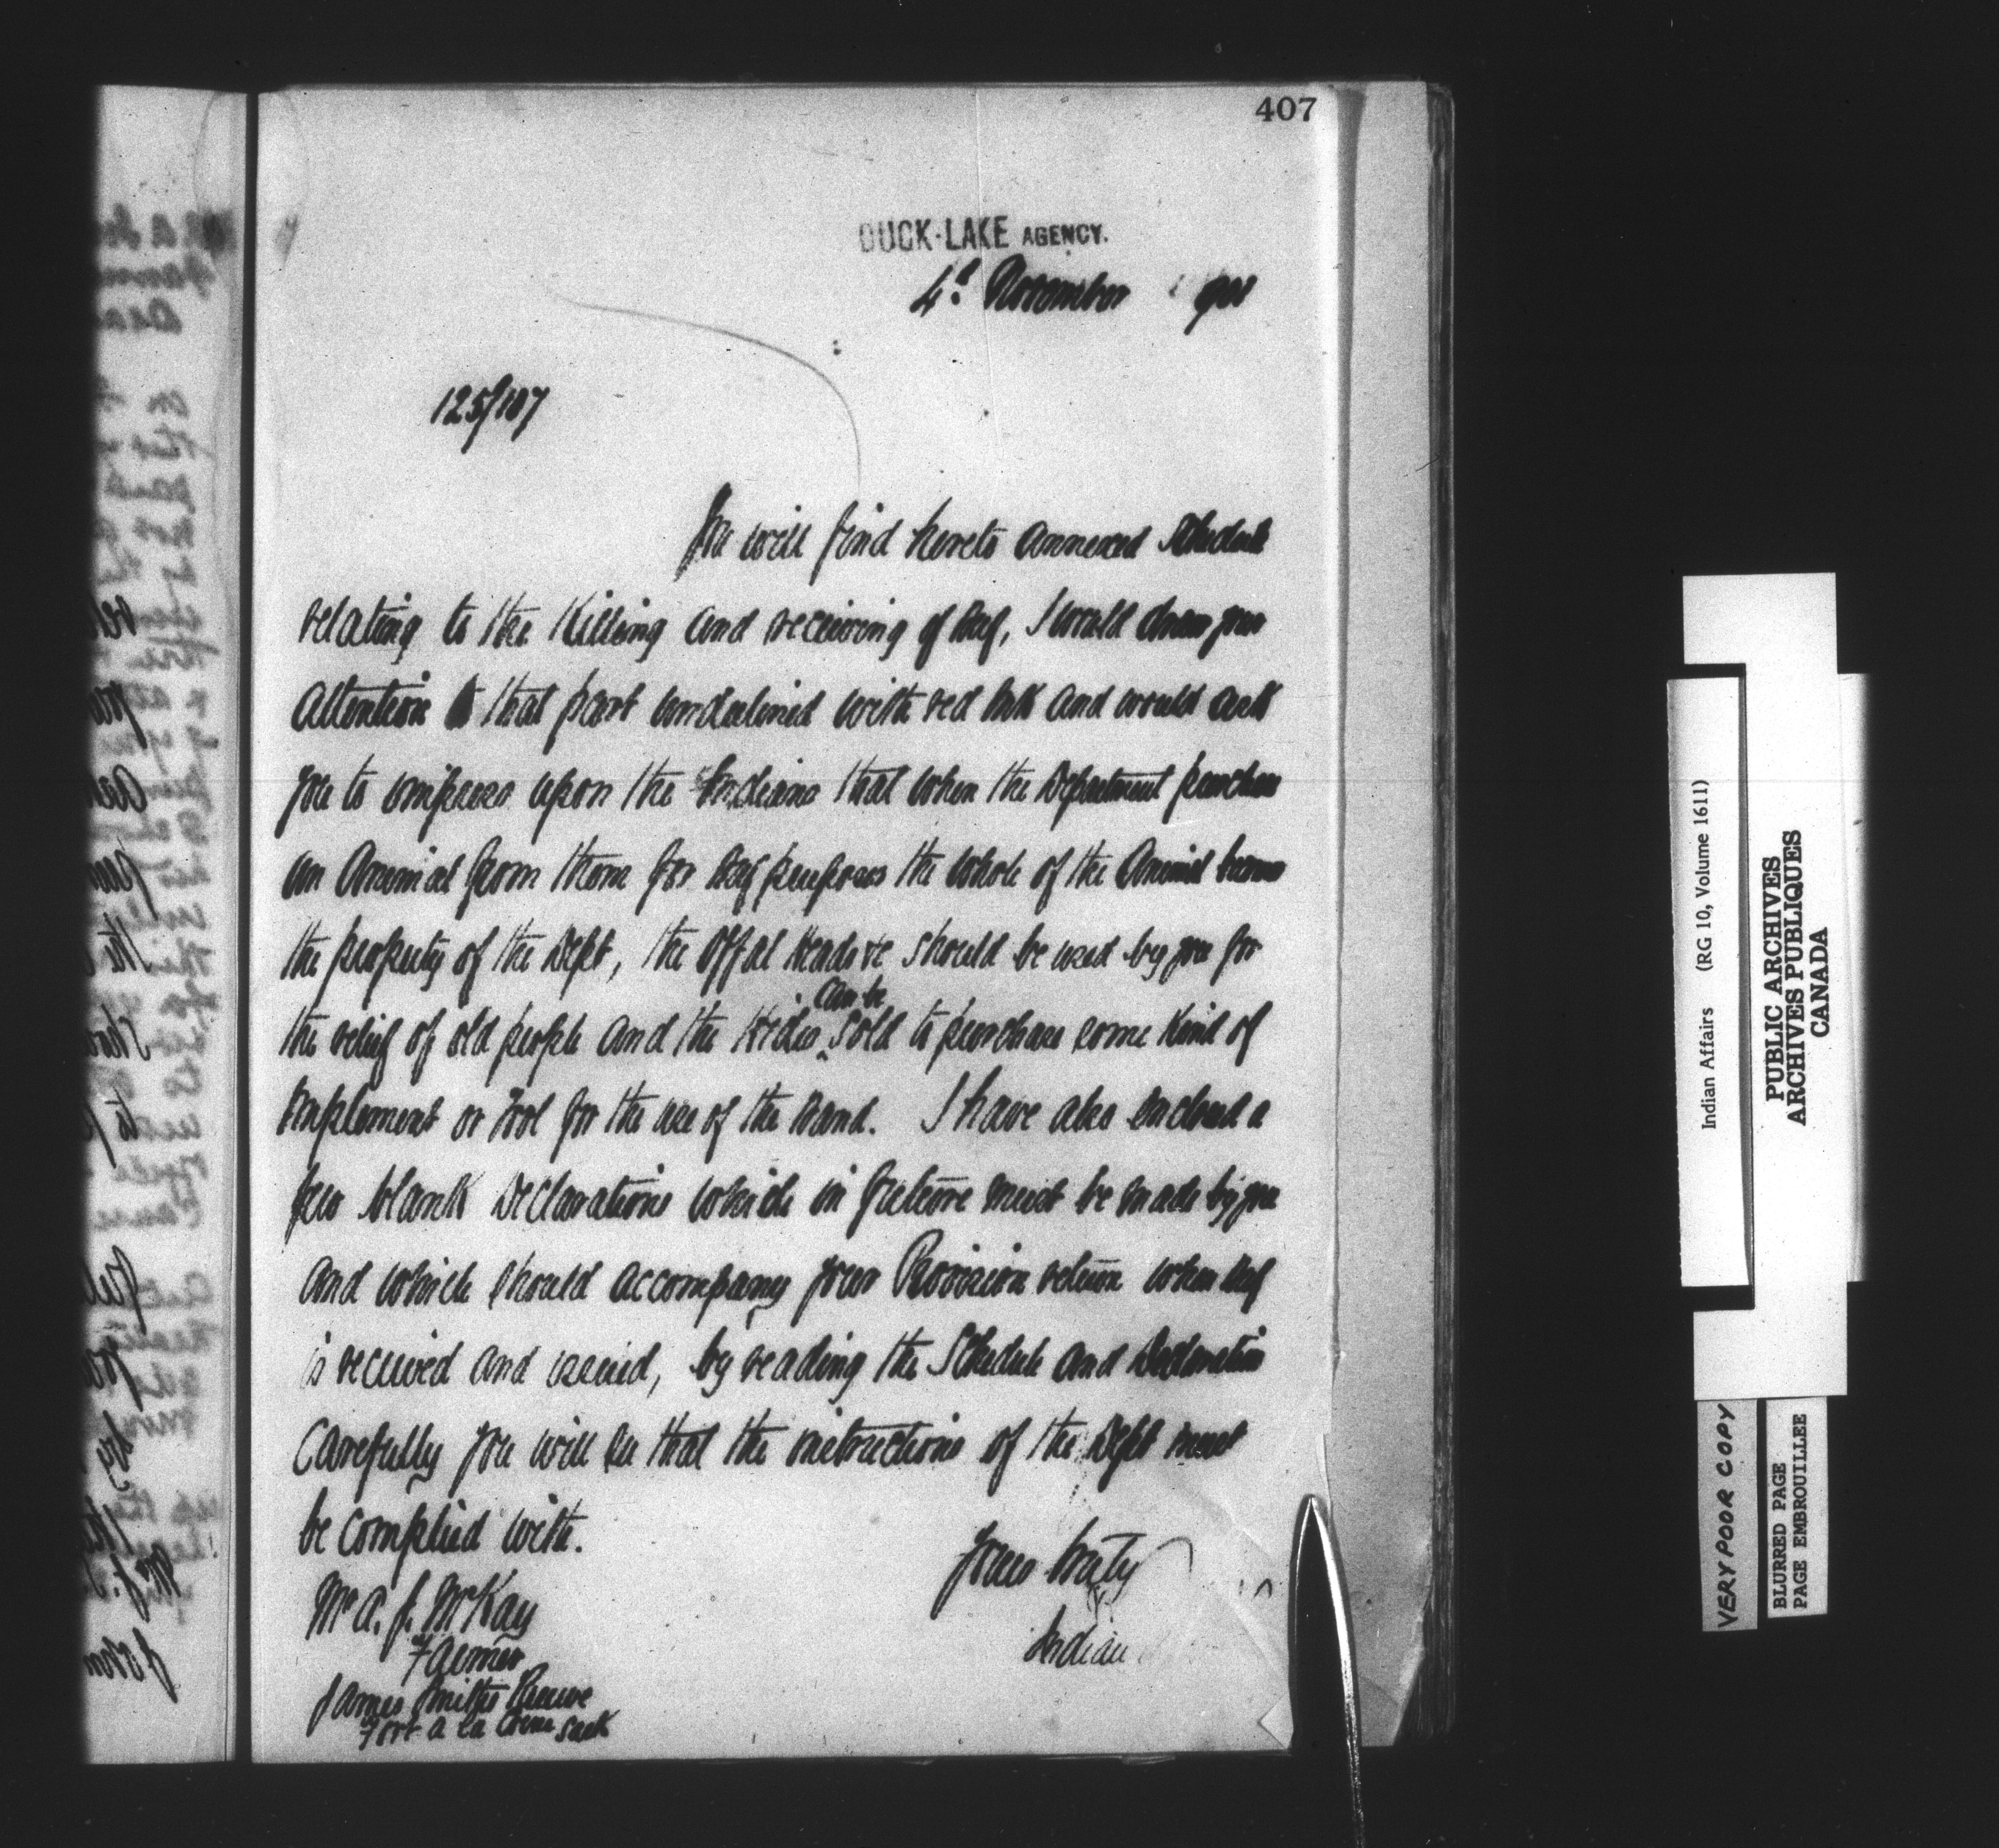 407
DUCK-LAKE AGENCY.
4th November 190
125/107
You will find hereto annexed Schedule
relating to the Killing and receiving of Beef, I would draw your
attention to that part underlined with red Ink and would ask
you to impress upon the Indians that when the Department purchase
an Animal from them for Beef purposes the whole of the Animal becomes
the property of the Dept, the offal Heads &c should be used by you for
the relief of old people and the Hides can be sold to purchase some Kind of
Implement or Tool for the use of the Band. I have also enclosed a
few blank Declarations which in future must be made by you
and which should accompany your Provision return when Beef
is received and issued, by reading the Schedule and Declaration
Carefully you will see that the instructions of the Dept must
be complied with.
Yours truly
Indian
Mr A. J. McKay
Farmer
James Smiths Reserve
Fort a la Corne Sask
Indian Affairs (RG 10, Volume 1611)
PUBLIC ARCHIVES
ARCHIVES PUBLIQUES
CANADA
VERY POOR COPY
BLURRED PAGE
PAGE EMBROUILLEE